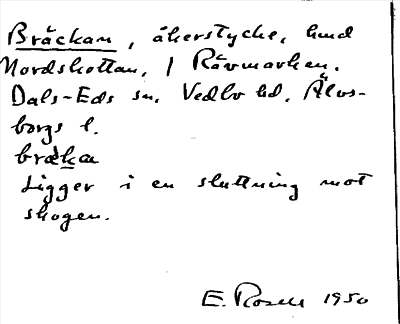 Bräckan, åkerstycke, hmd
Nordskottan, / Rävmarken.
Dals-Eds sn. Vedbo hd. Älvs-
borgs l.
brækа
Ligger i en sluttning mot
skogen.
E. Rosell 1950